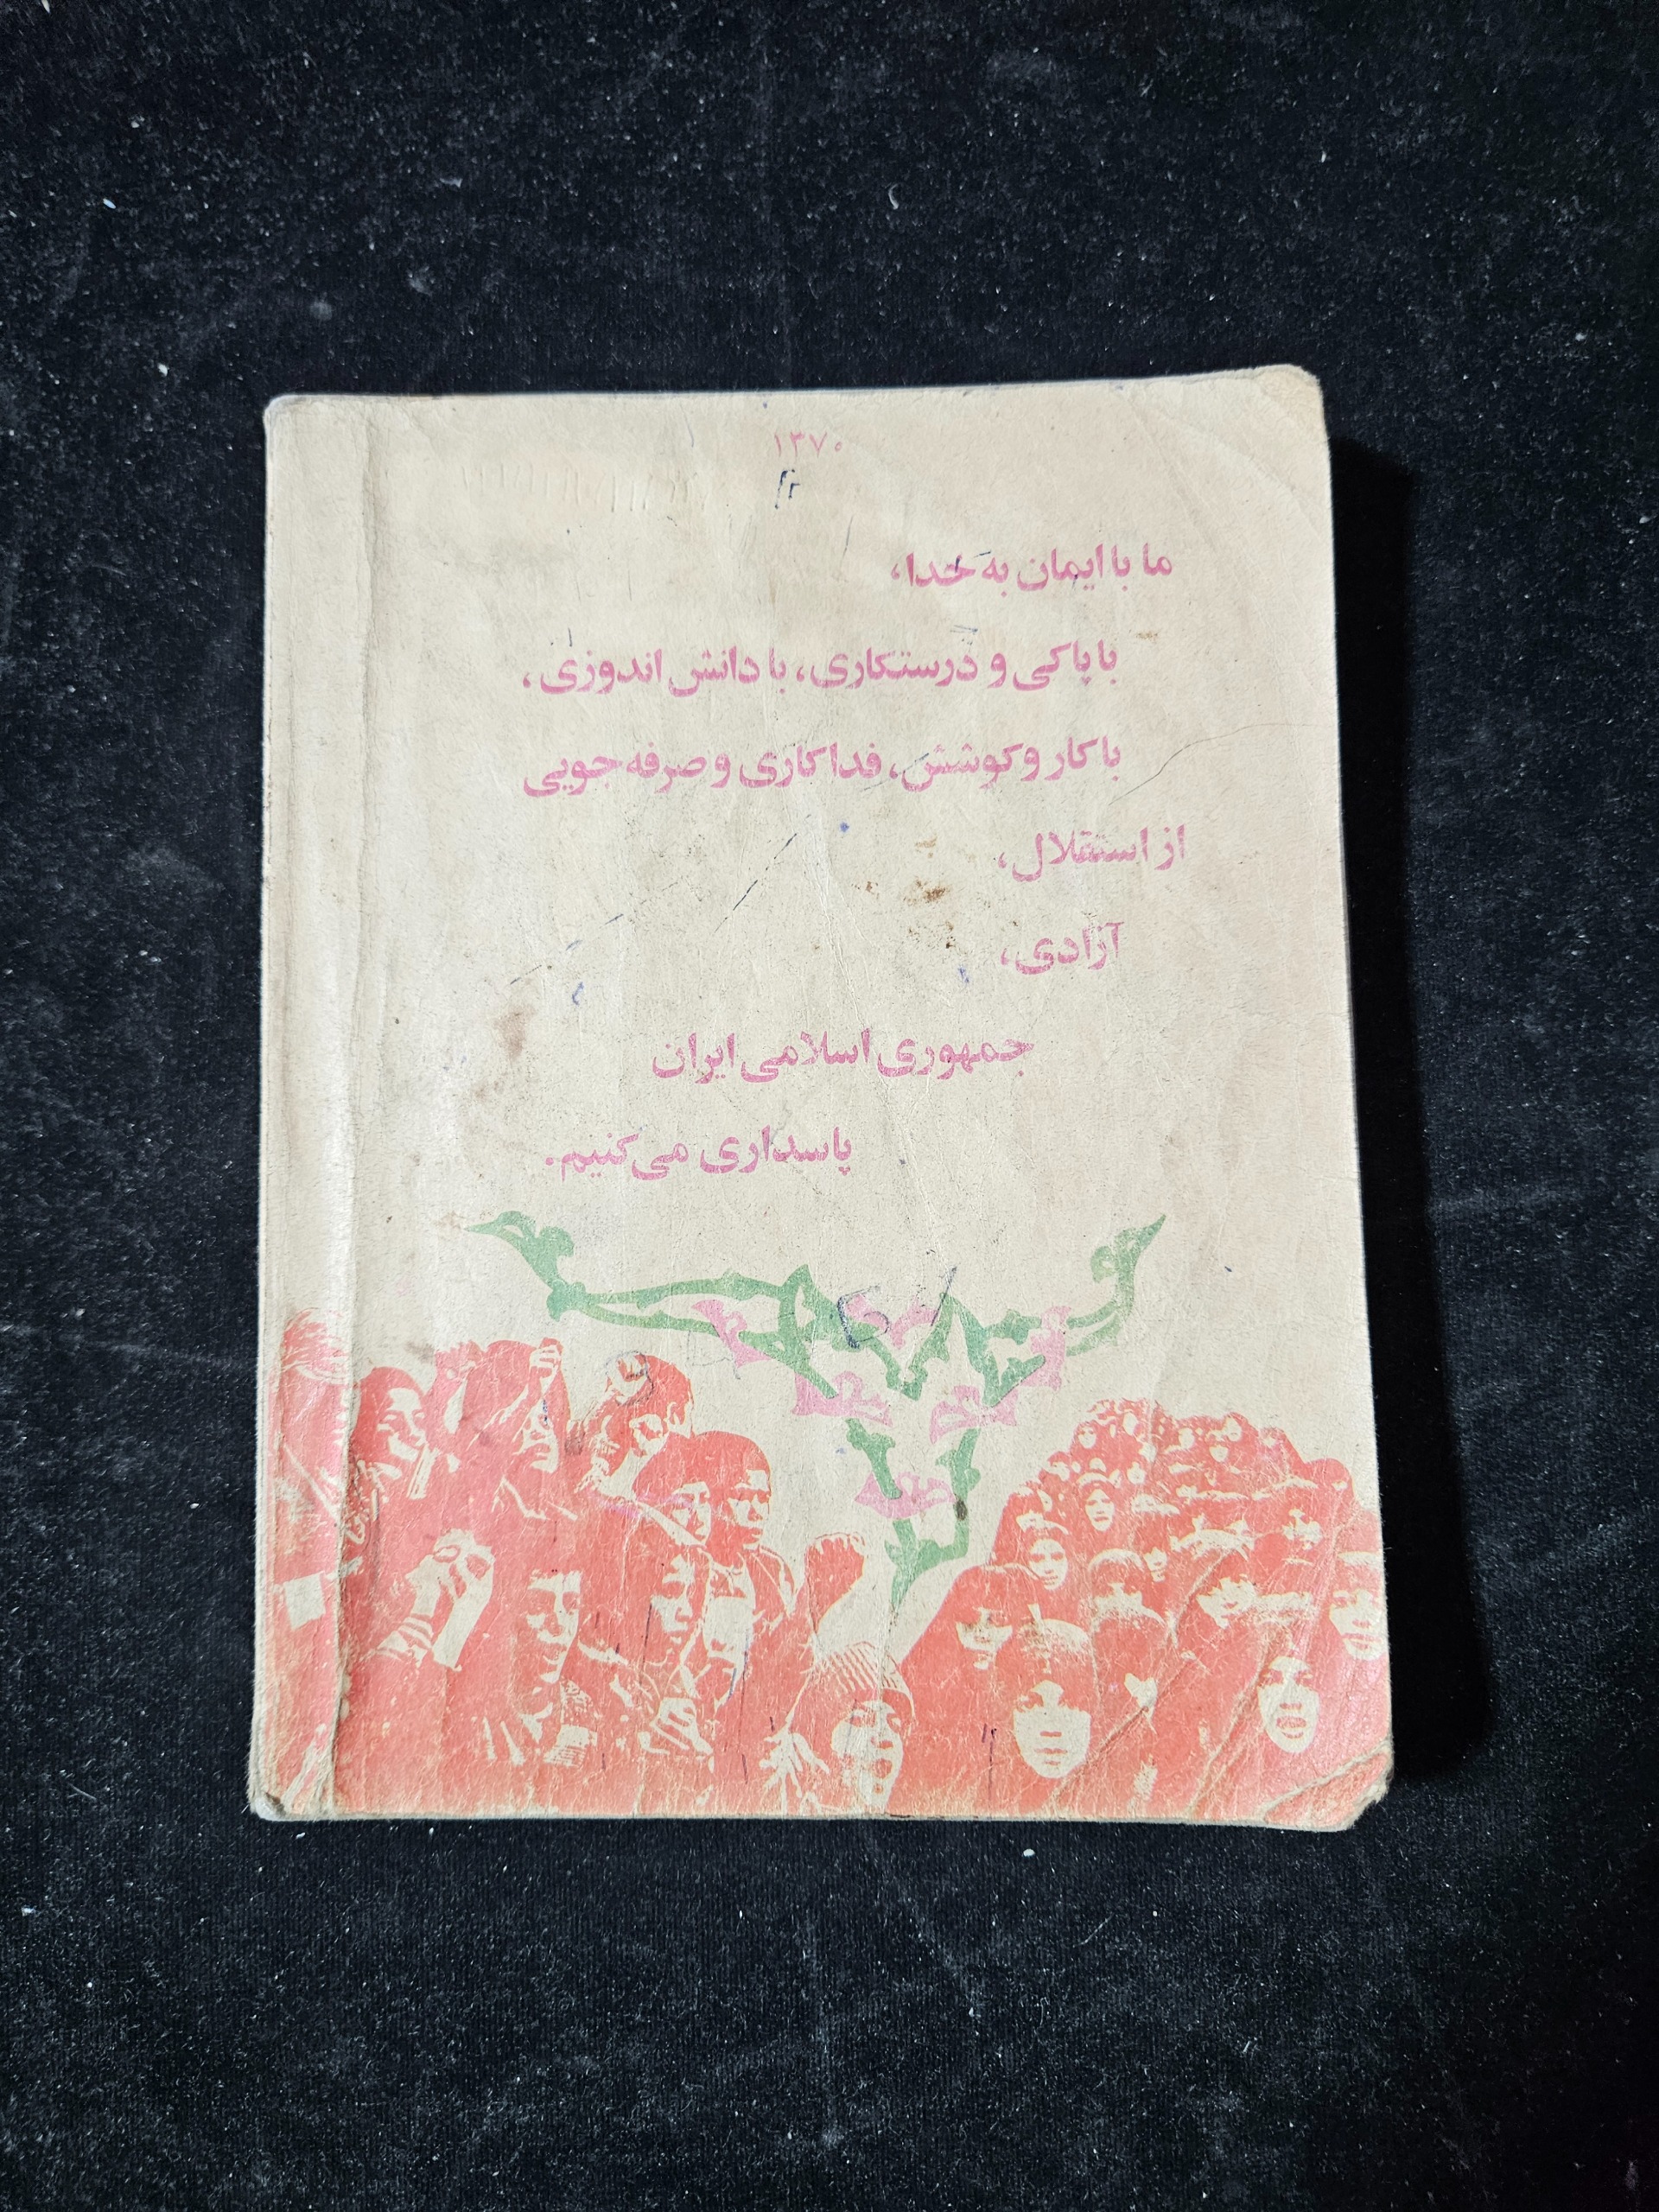 ۱۳۷۰
ما با ایمان به خدا،
با پاکی و درستکاری، با دانش اندوزی،
با کار و کوشش، فداکاری و صرفه جویی
از استقلال،
آزادی،
جمهوری اسلامی ایران
پاسداری می‌کنیم.